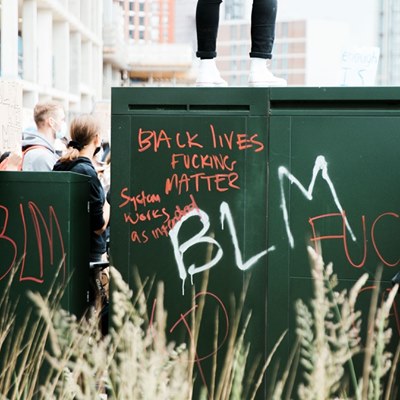 BLACK LIVES
FUCKING
MATTER
System
WORKS
as intended
BLM
BLM
FUC
IS